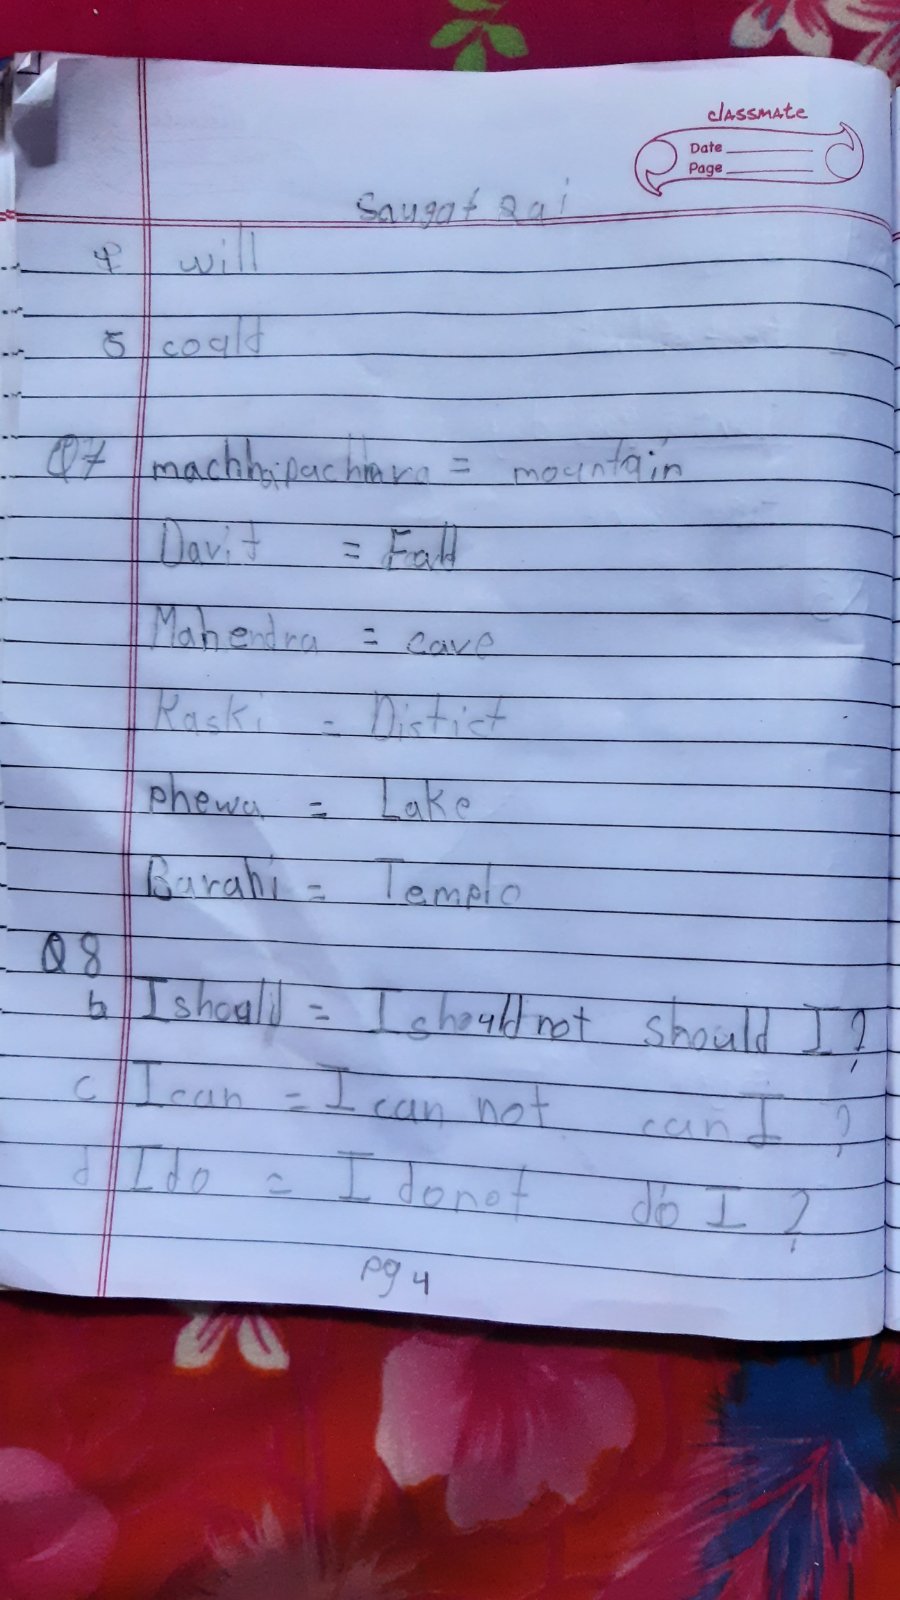 classmate
Date
Page
Saugat Rai
4 will
5 coald
Q7 machhapachhra = mountain
Davit = Fall
Mahendra = cave
Kaski = Distict
phewa = Lake
Barahi = Templo
Q8
b I shoald = I should not should I?
c I can = I can not can I ?
d I do = I do not do I ?
pg 4